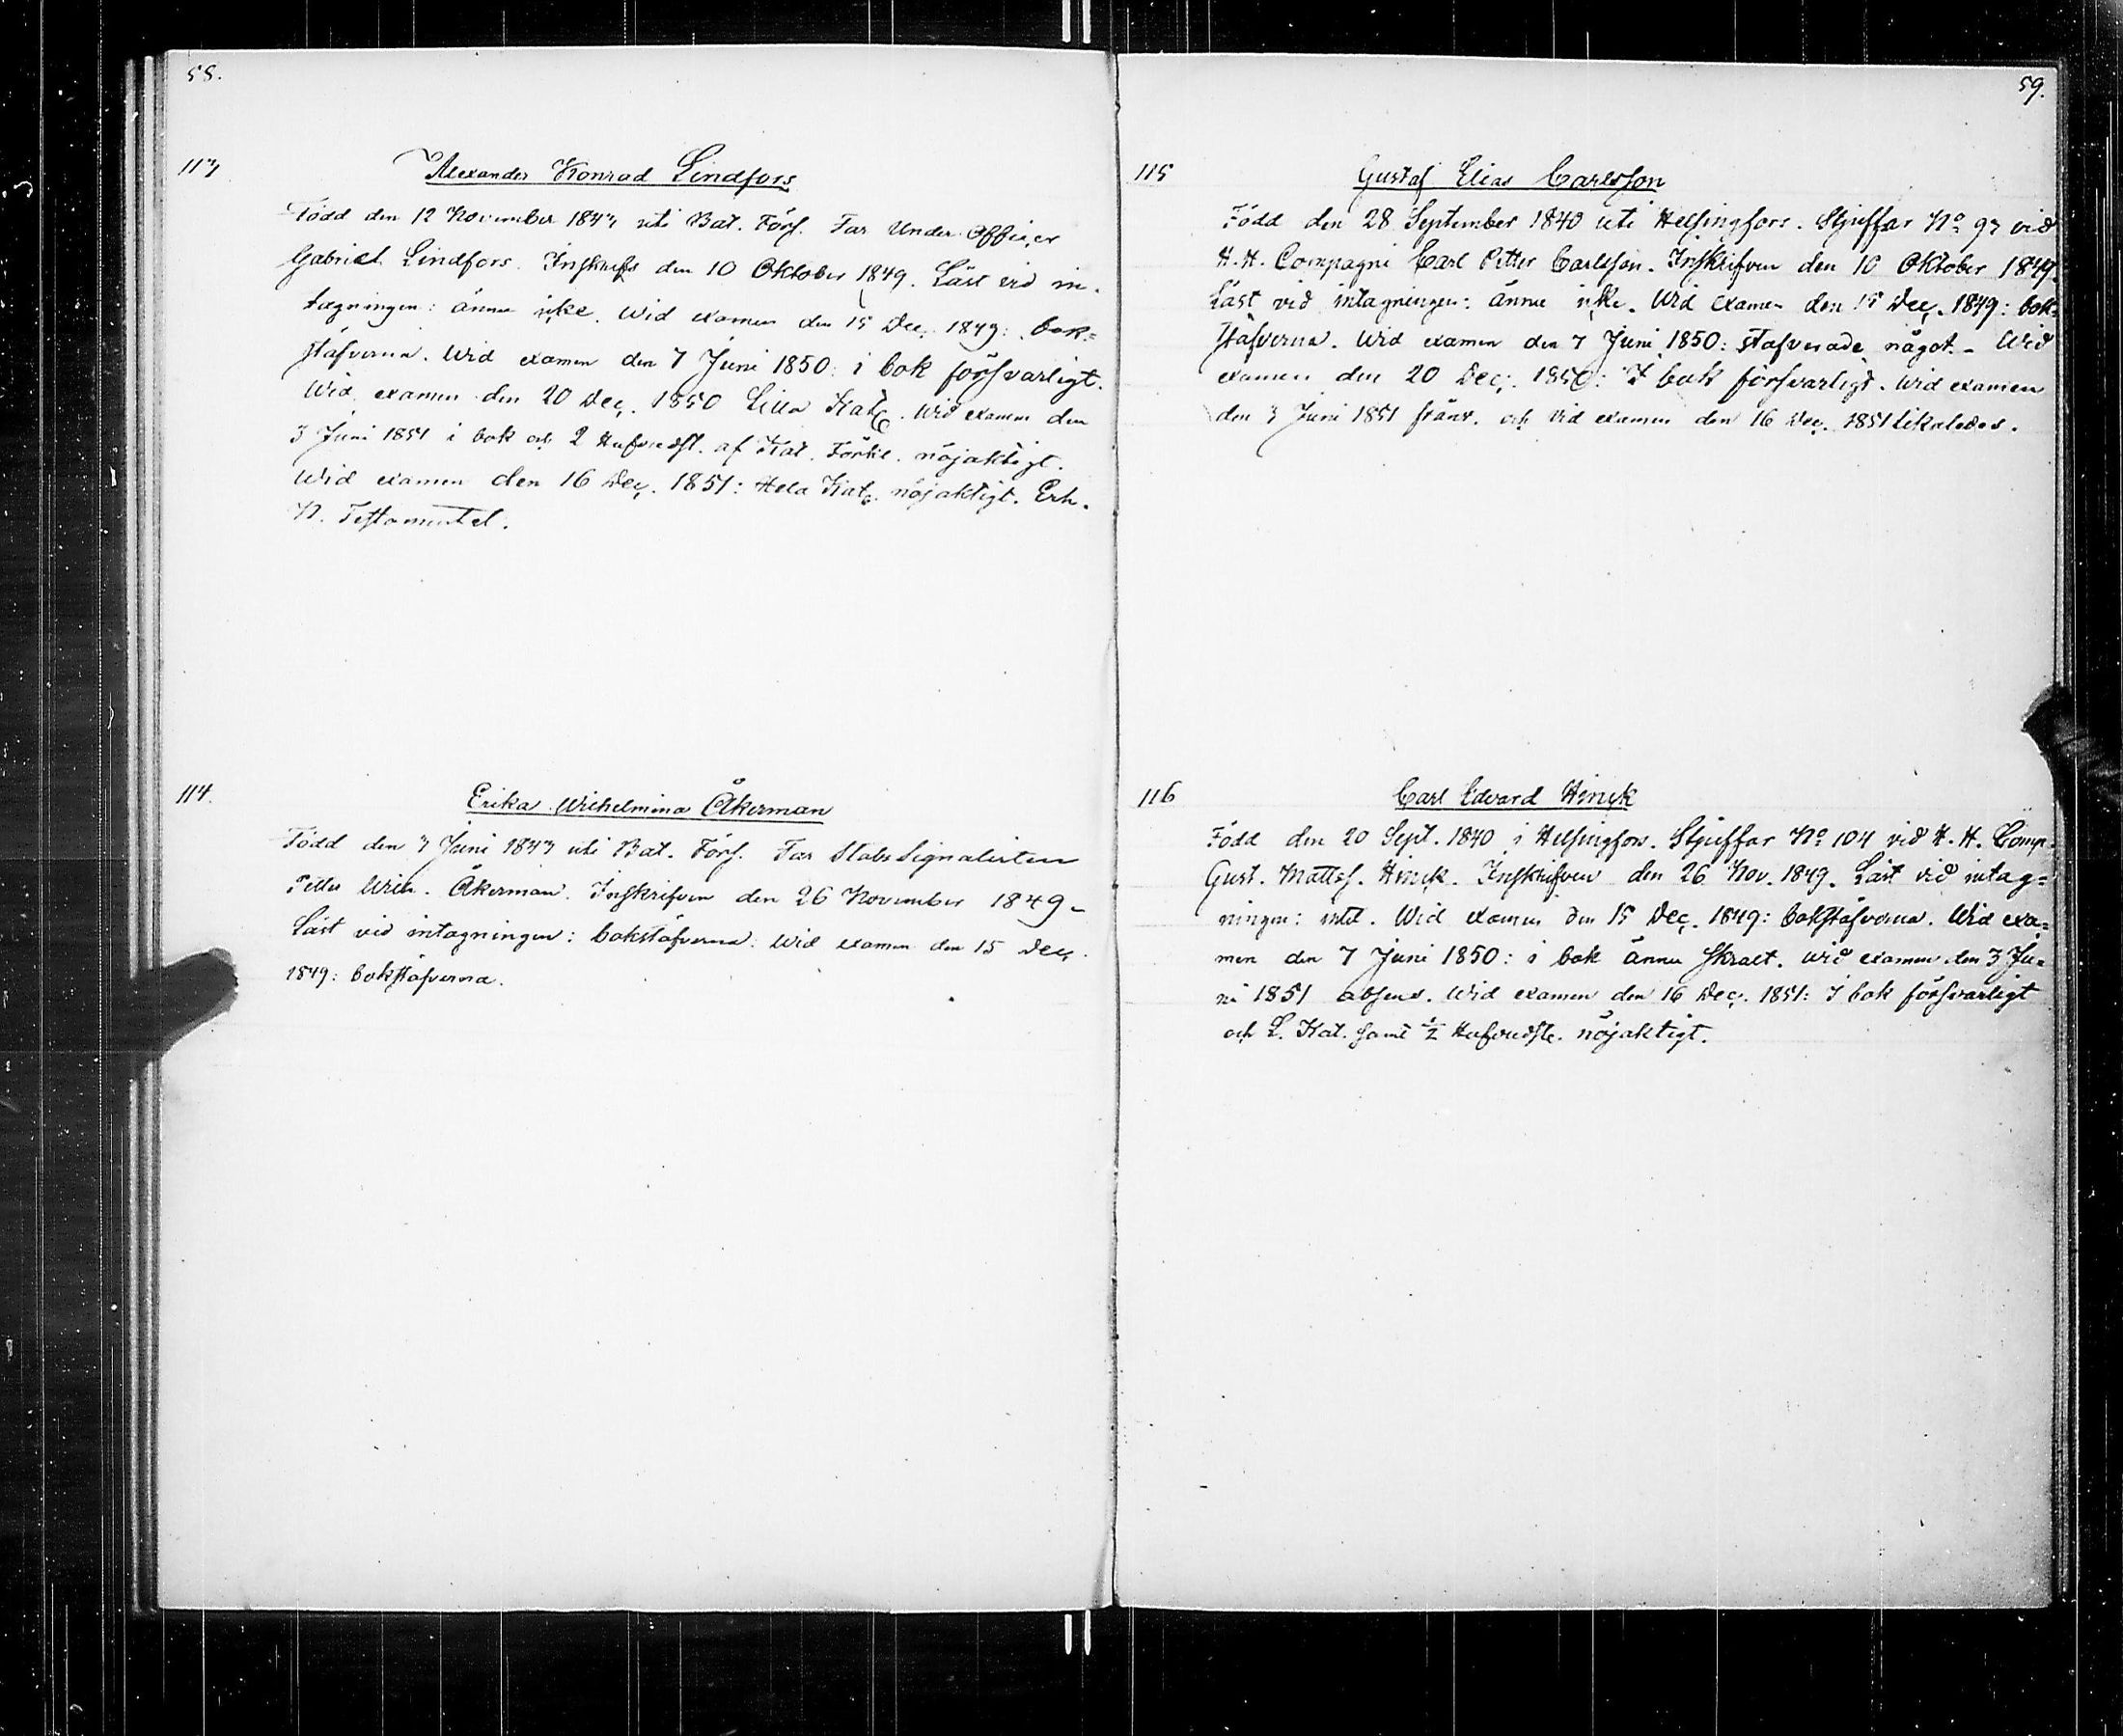 58.
113
Alexander Konrad Lindfors
Född den 12 November 1843 uti Bat. Förs. Far Under Officer
Gabriel Lindfors. Inskrefs den 10 Oktober 1849. Läst vid in-
tagningen: ännu icke. Wid examen den 15 Dec. 1849: bok=
stäfverna. Wid examen den 7 Juni 1850: i bok försvarligt.
Wid examen den 20 Dec. 1850 Lilla Katc. Wid examen den
3 Juni 1851 i bok och 2 Hufvudst. af Kat. Förkl. nöjaktigt.
Wid examen den 16 Dec. 1851: Hela Katc. nöjaktigt. Erh.
N. Testamentet.
114.
Erika Wilhelmina Åkerman
Född den 3 Juni 1843 uti Bat. Förs. Far Stabs Signalisten
Petter Wilh. Åkerman. Inskrifven den 26 November 1849-
Läst vid intagningen: bokstäfverna: Wid examen den 15 Dec.
1849: bokstäfverna.
59.
115
Gustaf Elias Carlsson
Född den 28 September 1840 uti Helsingfors. Styffar No 93 vid
H. H. Compagni Carl Petter Carlsson. Inskrifven den 10 Oktober 1849.
Läst vid intagningen: ännu icke. Wid examen den 15 Dec. 1849: bok=
stäfverna. Wid examen den 7 Juni 1850: stafverade något. - Wid
examen den 20 Dec. 1850: I bok försvarligt. Wid examen
den 3 Juni 1851 frånv. och vid examen den 16 Dec. 1851 likaledes.
116
Carl Edvard Hinck
Född den 20 Sept. 1840 i Helsingfors. Styffar No 104 vid H. H. Comp.
Gust. Mattss. Hinck. Inskrifven den 26 Nov. 1849. Läst vid intag=
ningen: intet. Wid examen den 15 Dec. 1849: bokstäfverna. Wid exa=
men den 7 Juni 1850: i bok ännu skralt. Wid examen den 3 Ju=
ni 1851 absens. Wid examen den 16 Dec. 1851: I bok försvarligt
och L. Kat. samt 1/2 Hufvudst. nöjaktigt.